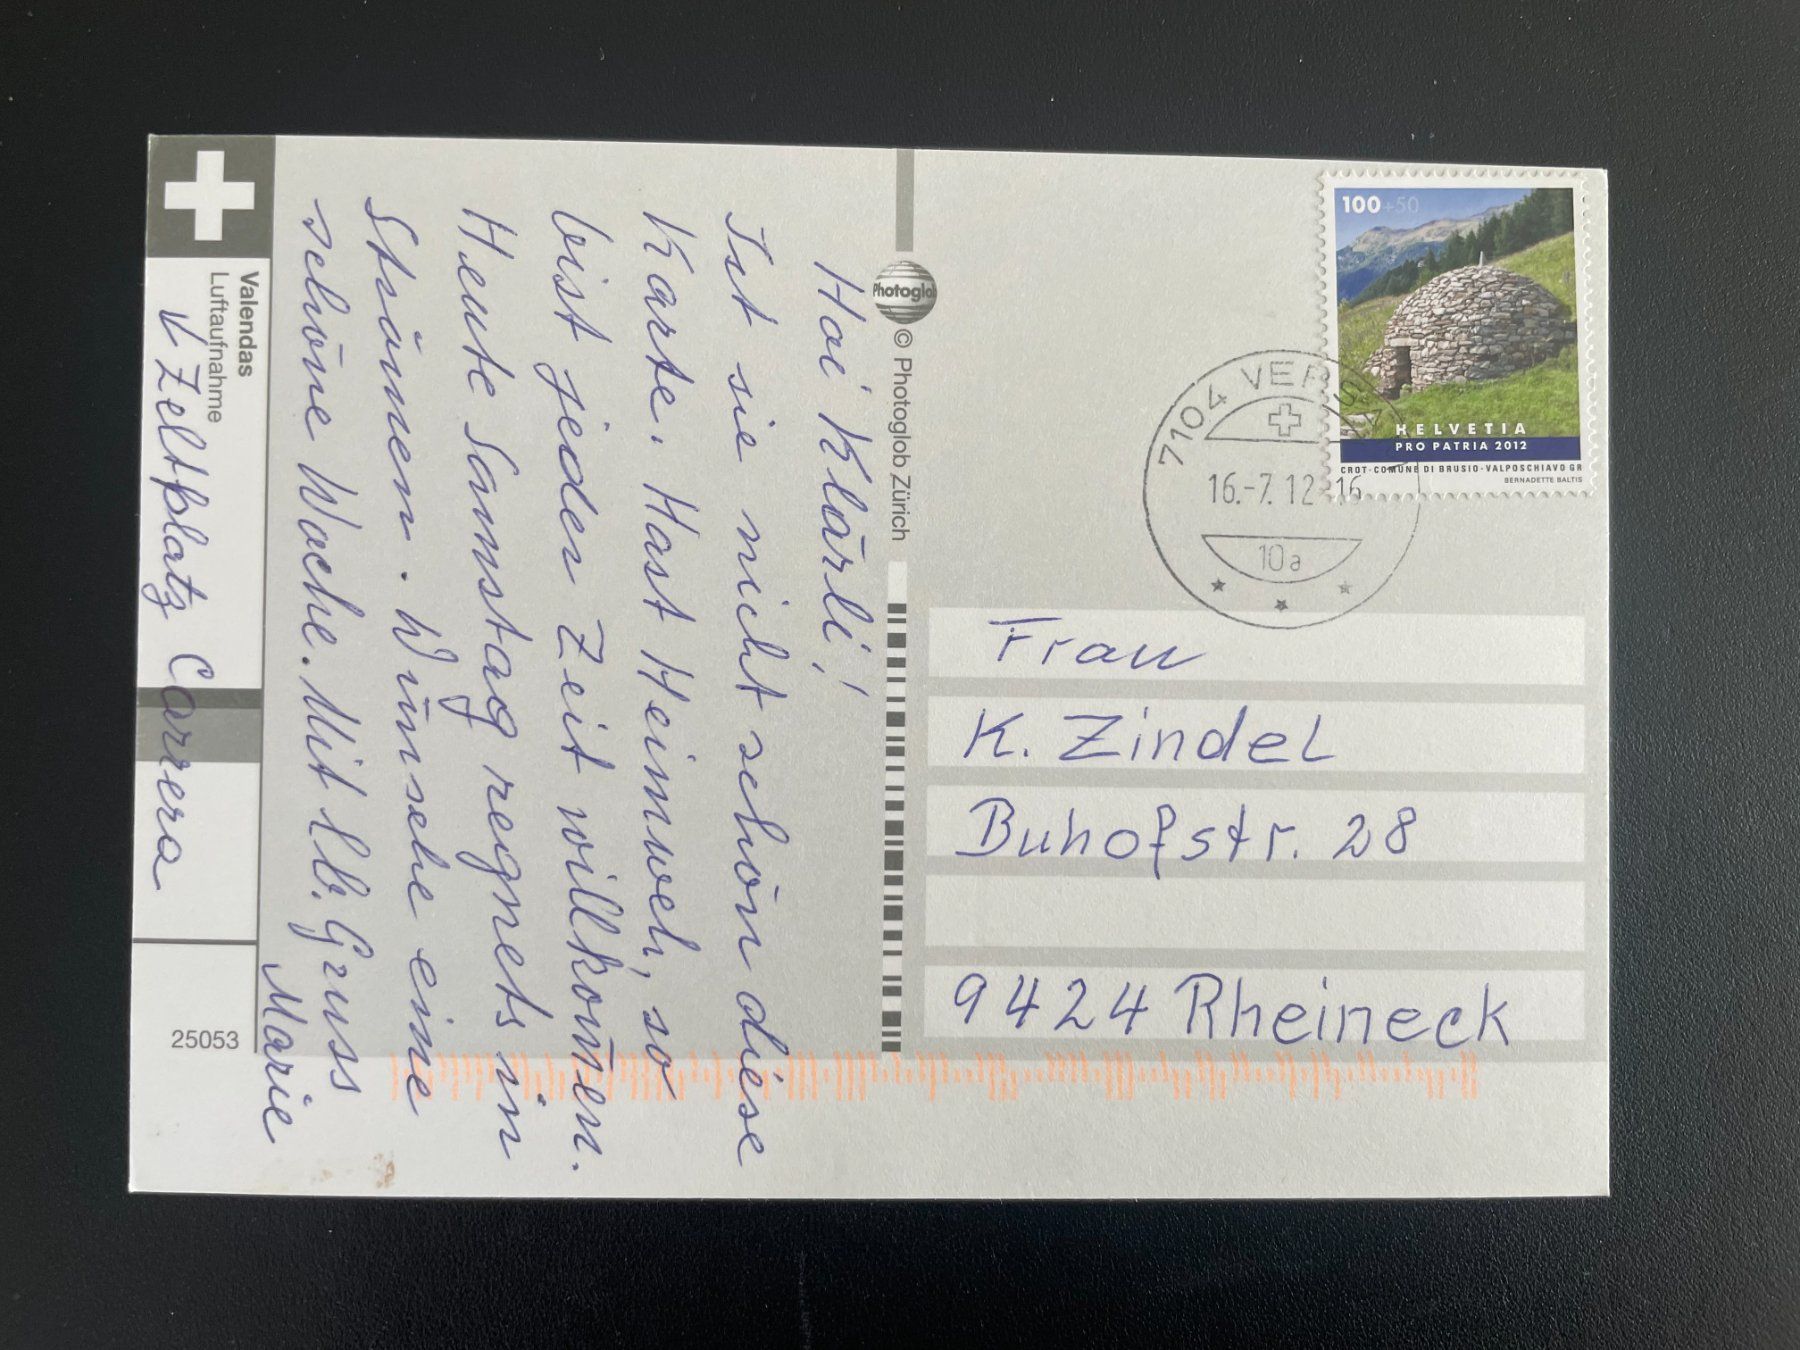 Hoi Klärli!
Ist sie nicht schön diese
Karte. Hast Heimweh, so
bist jeder Zeit willkom̄en.
Heute Samstag regnets in
Strömen. Wünsche eine
schöne Woche. Mit lb. Gruss
Marie
Valendas
Luftaufnahme
Zeltplatz Carrera
25053
Photoglob
© Photoglob Zürich
100+50
HELVETIA
PRO PATRIA 2012
CROT-COMUNE DI BRUSIO-VALPOSCHIAVO GR
BERNADETTE BALTIS
7104 VERSAM
16.-7.12-16
10a
Frau
K. Zindel
Buhofstr. 28
9424 Rheineck